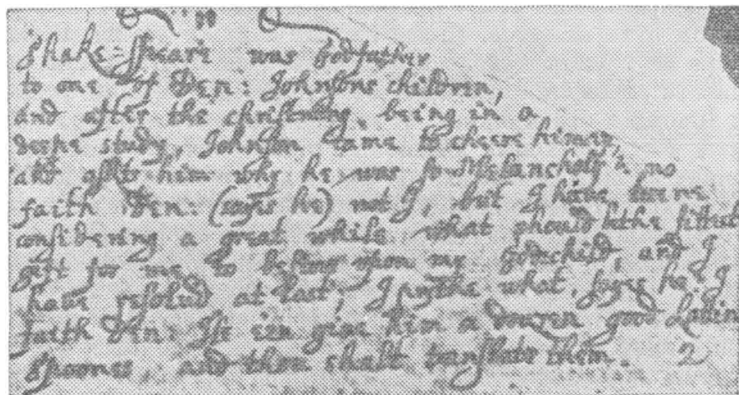 Shake-speare was Godfather
to one of Ben: Johnsons children,
and after the christning, being in a
deepe study, Johnson came to cheere him vp,
and askt him why he was so Melancholy? no
faith Ben: (sayes he) not I, but I haue beene
considering a great while what should bethe fittest
gift for me to bestow vpon my Godchild, and I
haue resolud at last; I prythe what, sayes he? I
faith Ben: Ile e'en giue him a douzen good Lattin
Spoones, and thou shalt translate them. 2